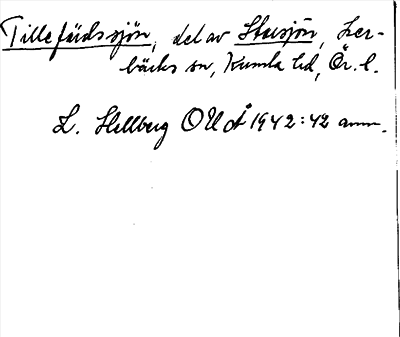 Tillefädssjön, del av Storsjön, Ler-
bäcks sn, Kumla hd, Ör. l.
L. Hellberg OUÅ 1942:42 anm.